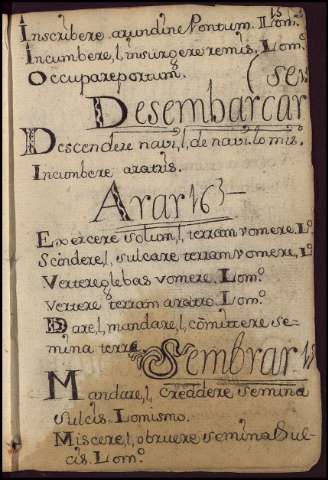 Inscribere arundine Pontum. Ilom.
Incumbere, l, insurgere remis. Lom.º
Occupare portum.
Desembarcar
Descendere navi, l, de navi. lo mis.
Incumbere aratris.
Arar 163
Exercere solium, l, terram vomere. Lº
Scindere, l, sulcare terram vomere. Lº
Vertere glebas vomere. Lom.º
Vertere terram aratro. Lom.º
Dare, l, mandare, l, cõmittere se-
mina terrę
Sembrar.
Mandare, l, creddere semina
sulcis. Lo mismo.
Miscere, l, obruere semina sul-
cis. Lom.º